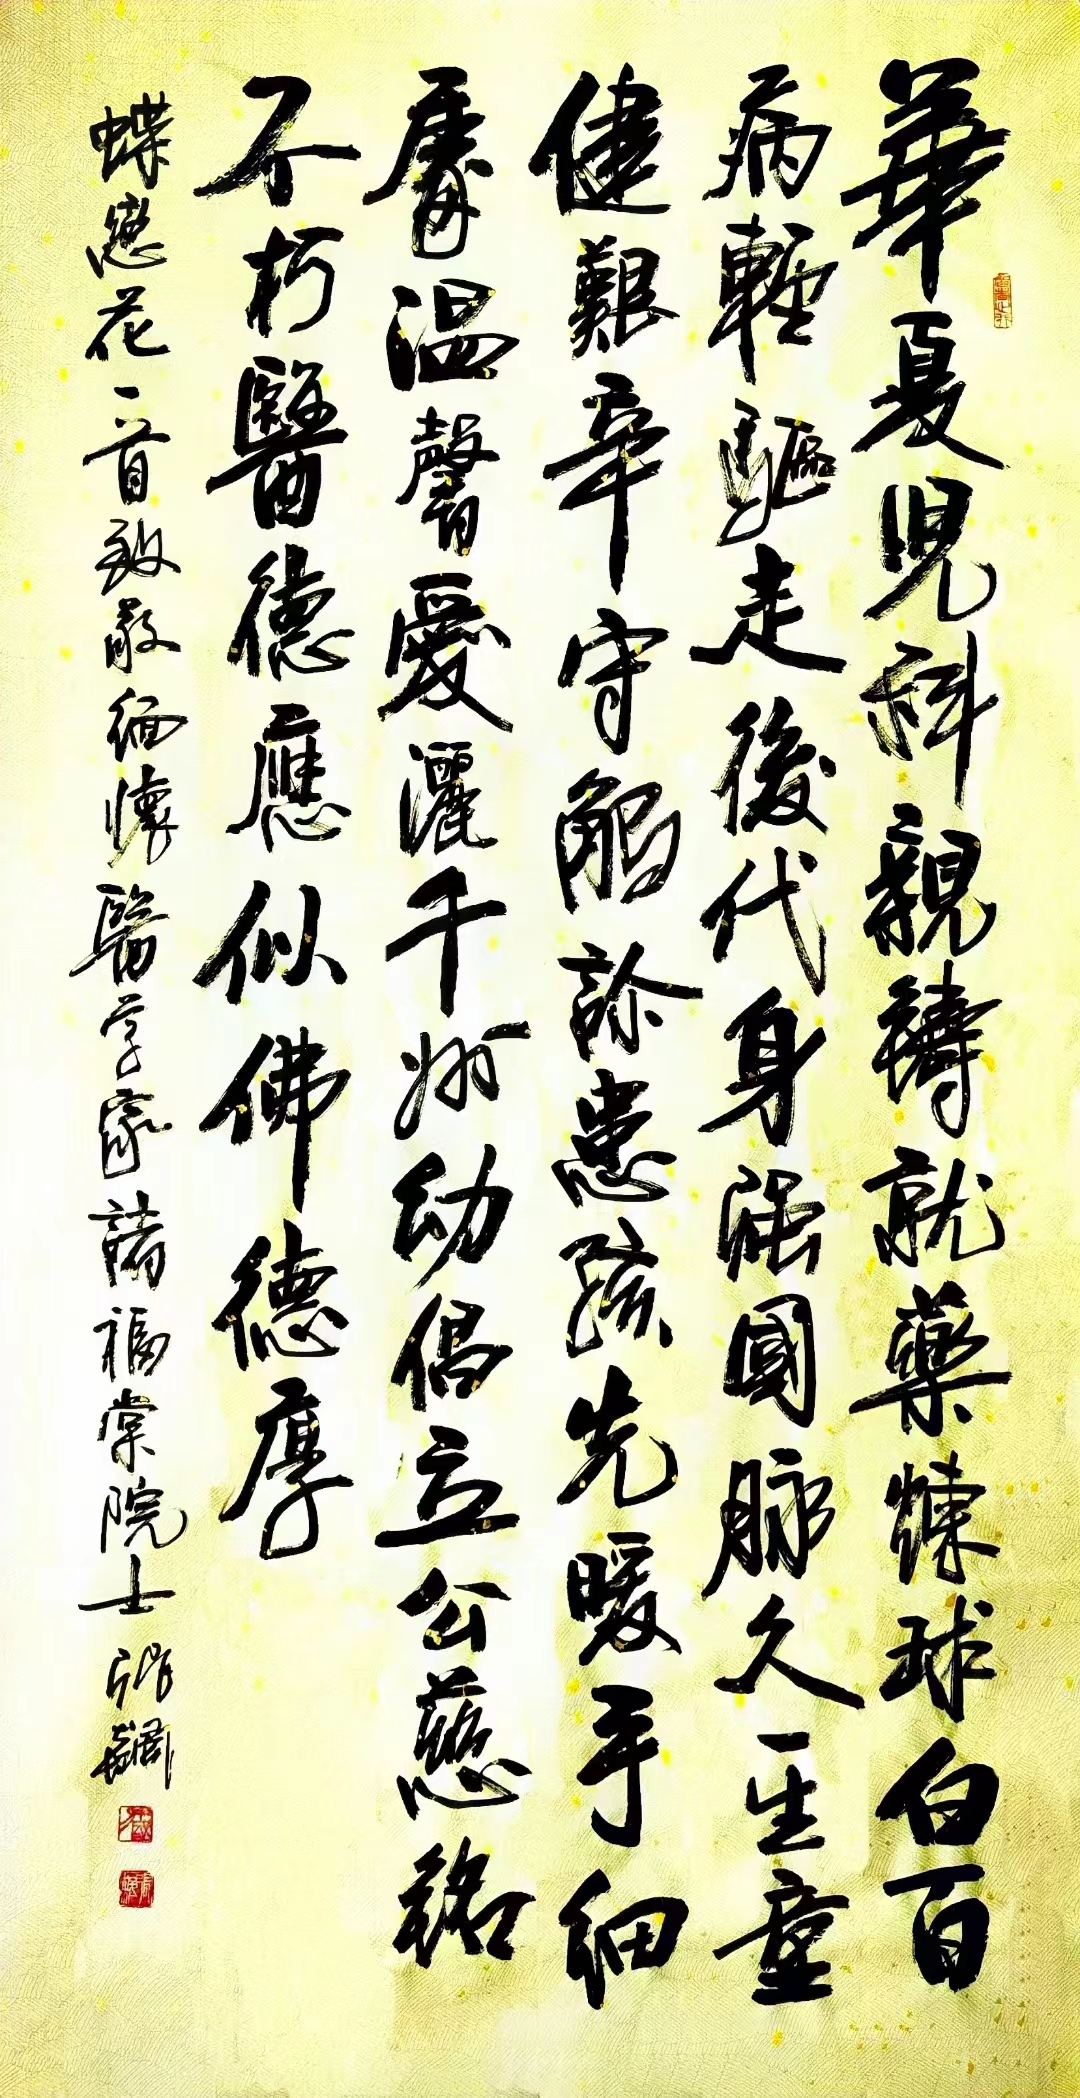 華夏兒科親鑄就藥煉球白百
病輕驅走後代身强國脉久一生童
健艱辛守解診患孩先暖手細
膚温馨愛灑千州幼倡立公慈銘
不朽醫德應似佛德厚
蝶戀花一首致敬緬懷醫学家諸福棠院士 張